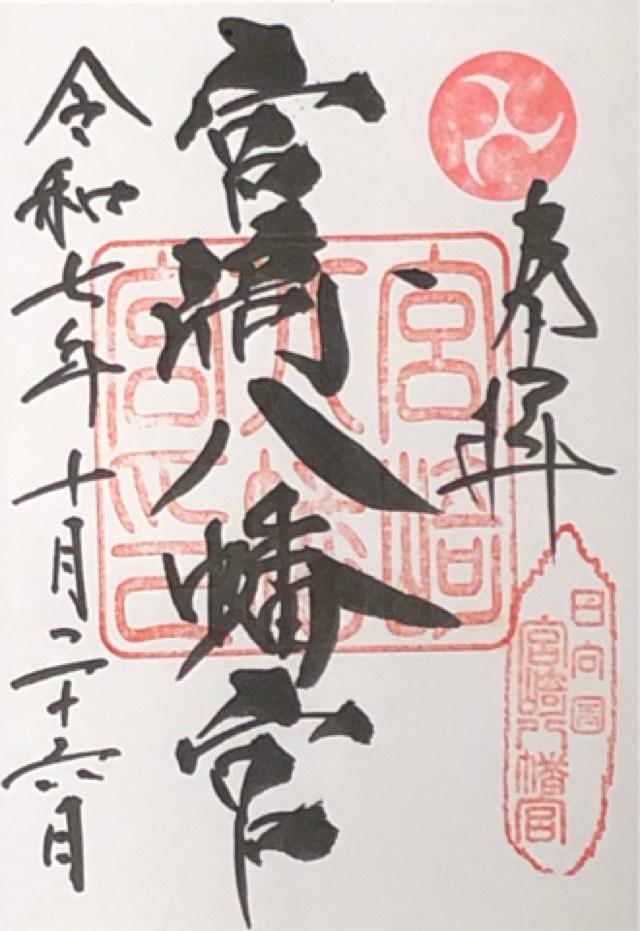 奉拝
日向国
宮崎八幡宮
宮崎八幡宮
宮崎
八幡
宮印
令和七年十月二十六日